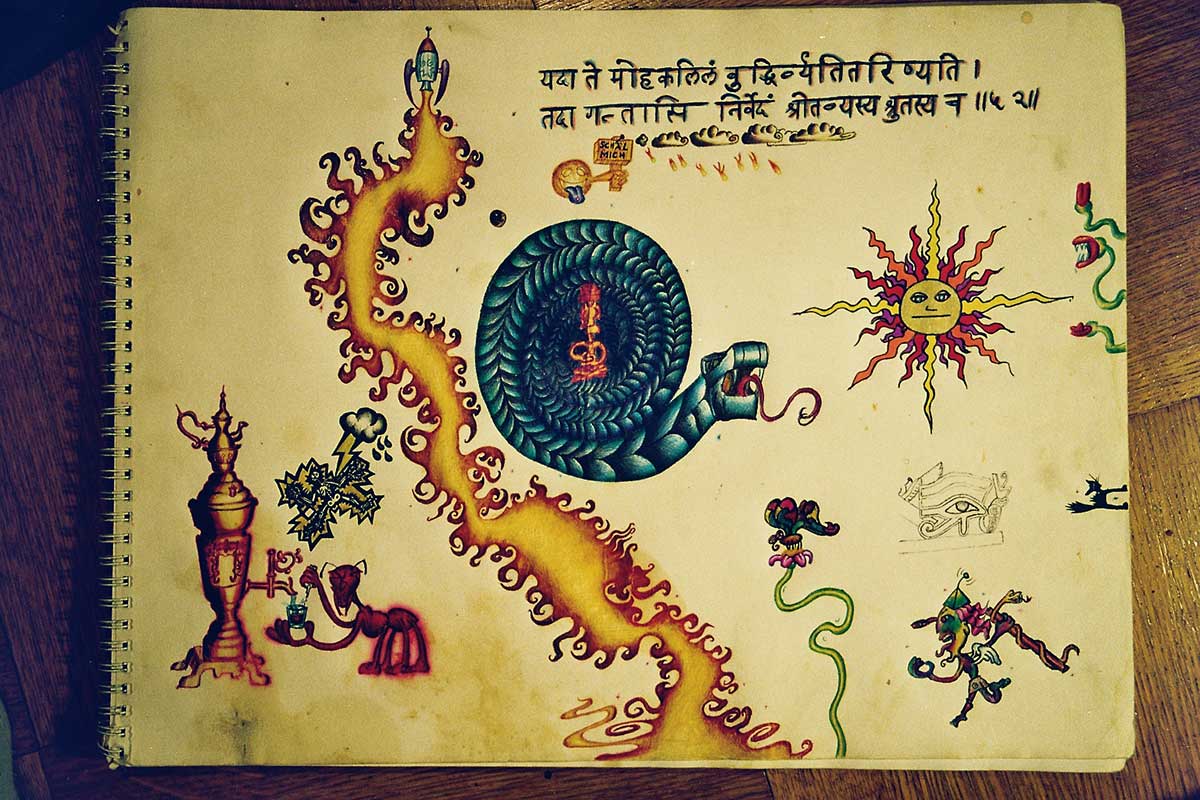 यदा ते मोहकलिलं बुद्धिर्व्यतितरिष्यति ।
तदा गन्तासि निर्वेदं श्रोतव्यस्य श्रुतस्य च ॥५२॥
SCHÄL
MICH